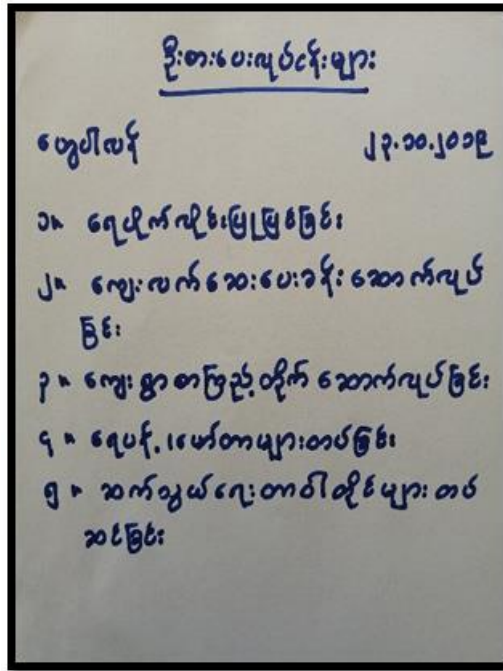 ဦးစားပေးလုပ်ငန်းများ
ဟွေပါလန် ၂၃.၁၀.၂၀၁၉
၁။ ရေပိုက်လိုင်းပြုပြင်ခြင်း
၂။ ကျေးလက်ဆေးပေးခန်းဆောက်လုပ်
ခြင်း
၃။ ကျေးရွာစာကြည့်တိုက်ဆောက်လုပ်ခြင်း
၄။ ရေပန့်၊မော်တာများတပ်ခြင်း
၅။ ဆက်သွယ်ရေးတာဝါတိုင်များတပ်
ဆင်ခြင်း